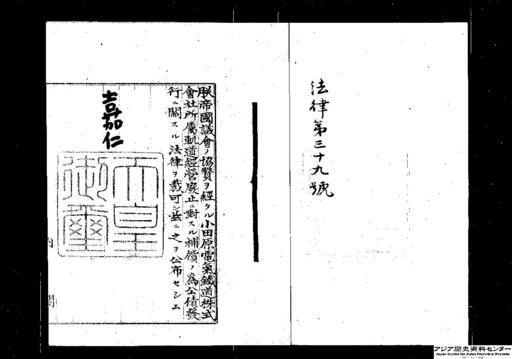 法律第三十九號
朕帝國議會ノ協贊ヲ經タル小田原電氣鐵道株式
會社所屬軌道經營廢止ニ對スル補償ノ爲公債發
行ニ關スル法律ヲ裁可シ玆ニ之ヲ公布セシム
嘉仁
天皇
御璽
内閣
アジア歴史資料センター
Japan Center for Asian Historical Records